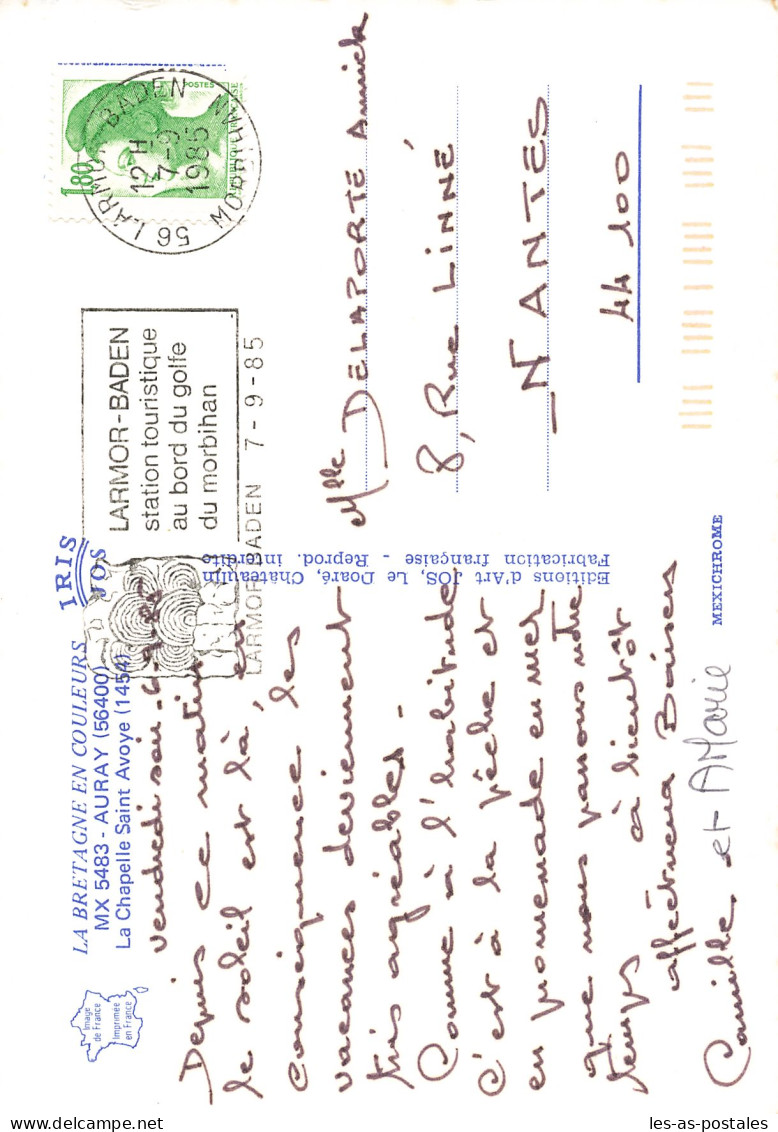 LA BRETAGNE EN COULEURS
MX 5483 - AURAY (56400)
La Chapelle Saint Avoye (1454)
IRIS
JOS
Image
de France
Imprimée
en France
vendredi soir 6.9.85
Depuis ce matin
le soleil est là, en
conséquence les
vacances deviennent
très agréables -
Comme à l'habitude
c'est à la pêche et
en promenade en mer
que nous passons notre
temps à bientôt
affectueux Baisers
Camille et AMarie
Editions d'Art JOS, Le Doaré, Chateaulin
Fabrication française - Reprod. interdite
MEXICHROME
1,80
POSTES
56 LARMOR BADEN
12 H
7-9
1985
MORBIHAN
LARMOR-BADEN
station touristique
au bord du golfe
du morbihan
LARMOR BADEN 7-9-85
Mlle DELAPORTE Annick
8, Rue LINNÉ
NANTES
44 100
les-as-postales